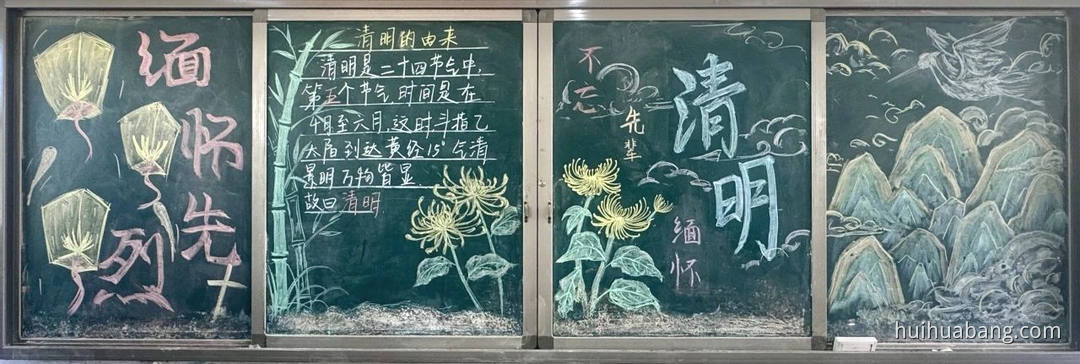 缅怀先
烈
清明的由来
清明是二十四节气中,
第五个节气.时间是在
4月至六月.这时斗指乙
太阳到达黄经15°气清
景明万物皆显.
故曰清明
不忘
先辈
清明
缅怀
huihuabang.com